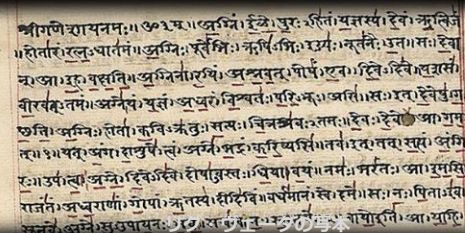 श्रीगणेशायनमः॥ॐ३म्॥अग्निं।ईळे।पुरःऽहितं।यज्ञस्य।देवं।ऋत्विजं
।होतारं।रत्नऽधातमं॥अग्निः।पूर्वेभिः।ऋषिऽभिः।ईड्यः।नूतनैः।उत॥सः।देवा
न्।आ।इह।वक्षति॥अग्निना।रयिं।अश्नवत्।पोषं।एव।दिवेऽदिवे॥यशसं
वीरवत्ऽतमं॥अग्ने।यं।यज्ञं।अध्वरं।विश्वतः।परिऽभूः।असि॥सः।इत्।देवेषु।ग
छति॥अग्निः।होता।कविऽक्रतुः।सत्यः।चित्रश्रवःऽतमः॥देवः।आ।गम
त्॥१॥यत्।अंग।दाशुषे।त्वं।अग्ने।भद्रं।करिष्यसि॥तव।इत्।तत्।सत्यं।अंगि
रः॥उप।त्वा।अग्ने।दिवेऽदिवे।दोषाऽवस्तः।धिया।वयं॥नमः।भरंतः।आ।इमसि
राजंतं।अध्वराणां।गोपां।ऋतस्य।दीदिविं॥वर्धमानं।स्वे।दमे॥सः।नः।पिताऽइव
सूनवे।अग्ने।सुऽउपायनः
リグ・ヴェーダの写本